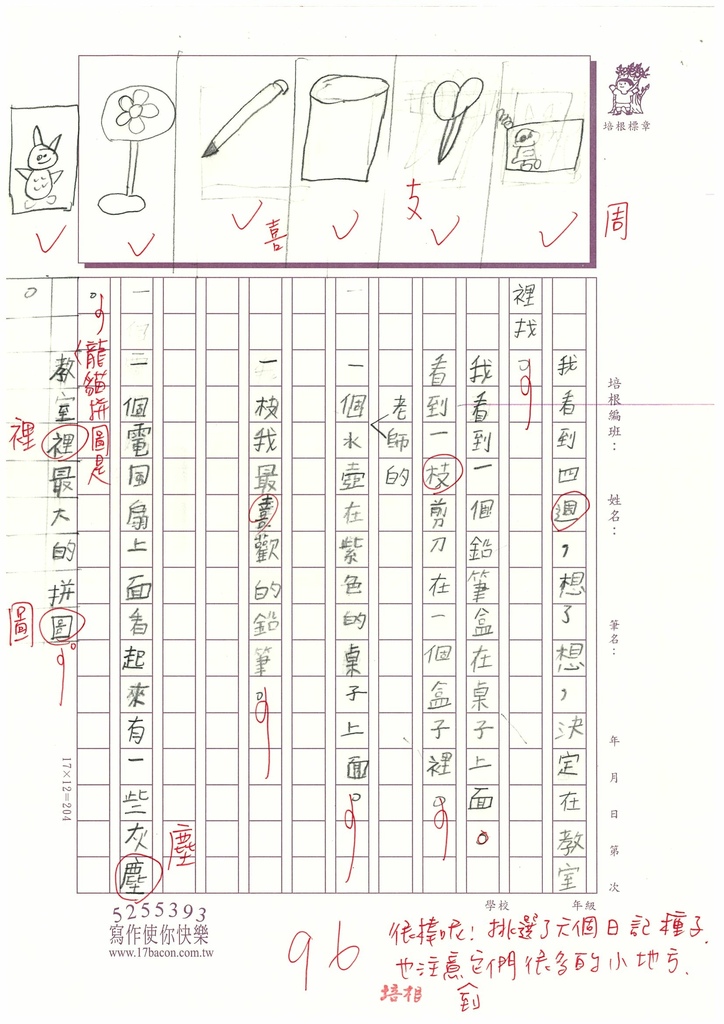 培根標章
周
支
喜
培根編班：
姓名：
筆名：
年 月 日 第 次
我看到四週，想了想，決定在教室
裡找。
我看到一個鉛筆盒在桌子上面。
看到一枝剪刀在一個盒子裡。
老師的
一個水壺在紫色的桌子上面。
一枝我最喜歡的鉛筆。
塵
一個電風扇上面看起來有一些灰塵
。
龍貓拼圖是
教室裡最大的拼圖。
裡
圖
17×12=204
學校
年級
5255393
寫作使你快樂
www.17bacon.com.tw
96
很棒呢！挑選了六個日記種子，
也注意到它們很多的小地方。
培根